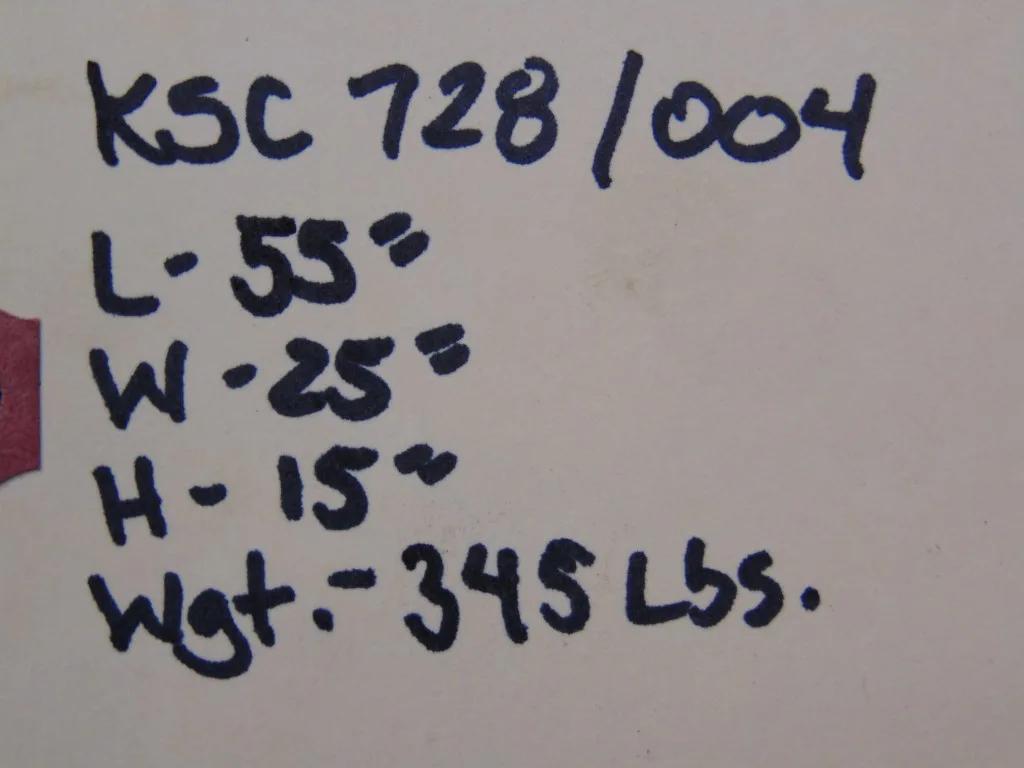 KSC 728/004
L - 55"
W - 25"
H - 15"
Wgt. - 345 Lbs.